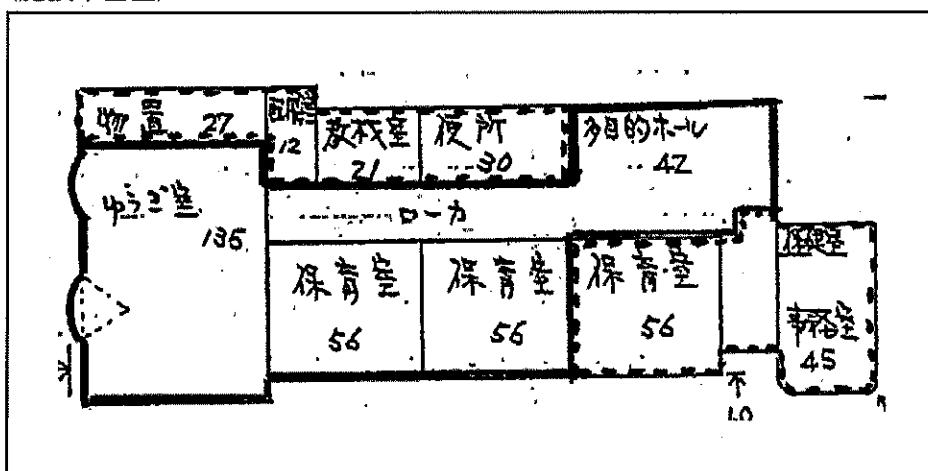 物置 27
12
教材室 21
便所 30
多目的ホール 42
ゆうぎ室 135
ローカ
保育室 56
保育室 56
保育室 56
保健室
事務室 45